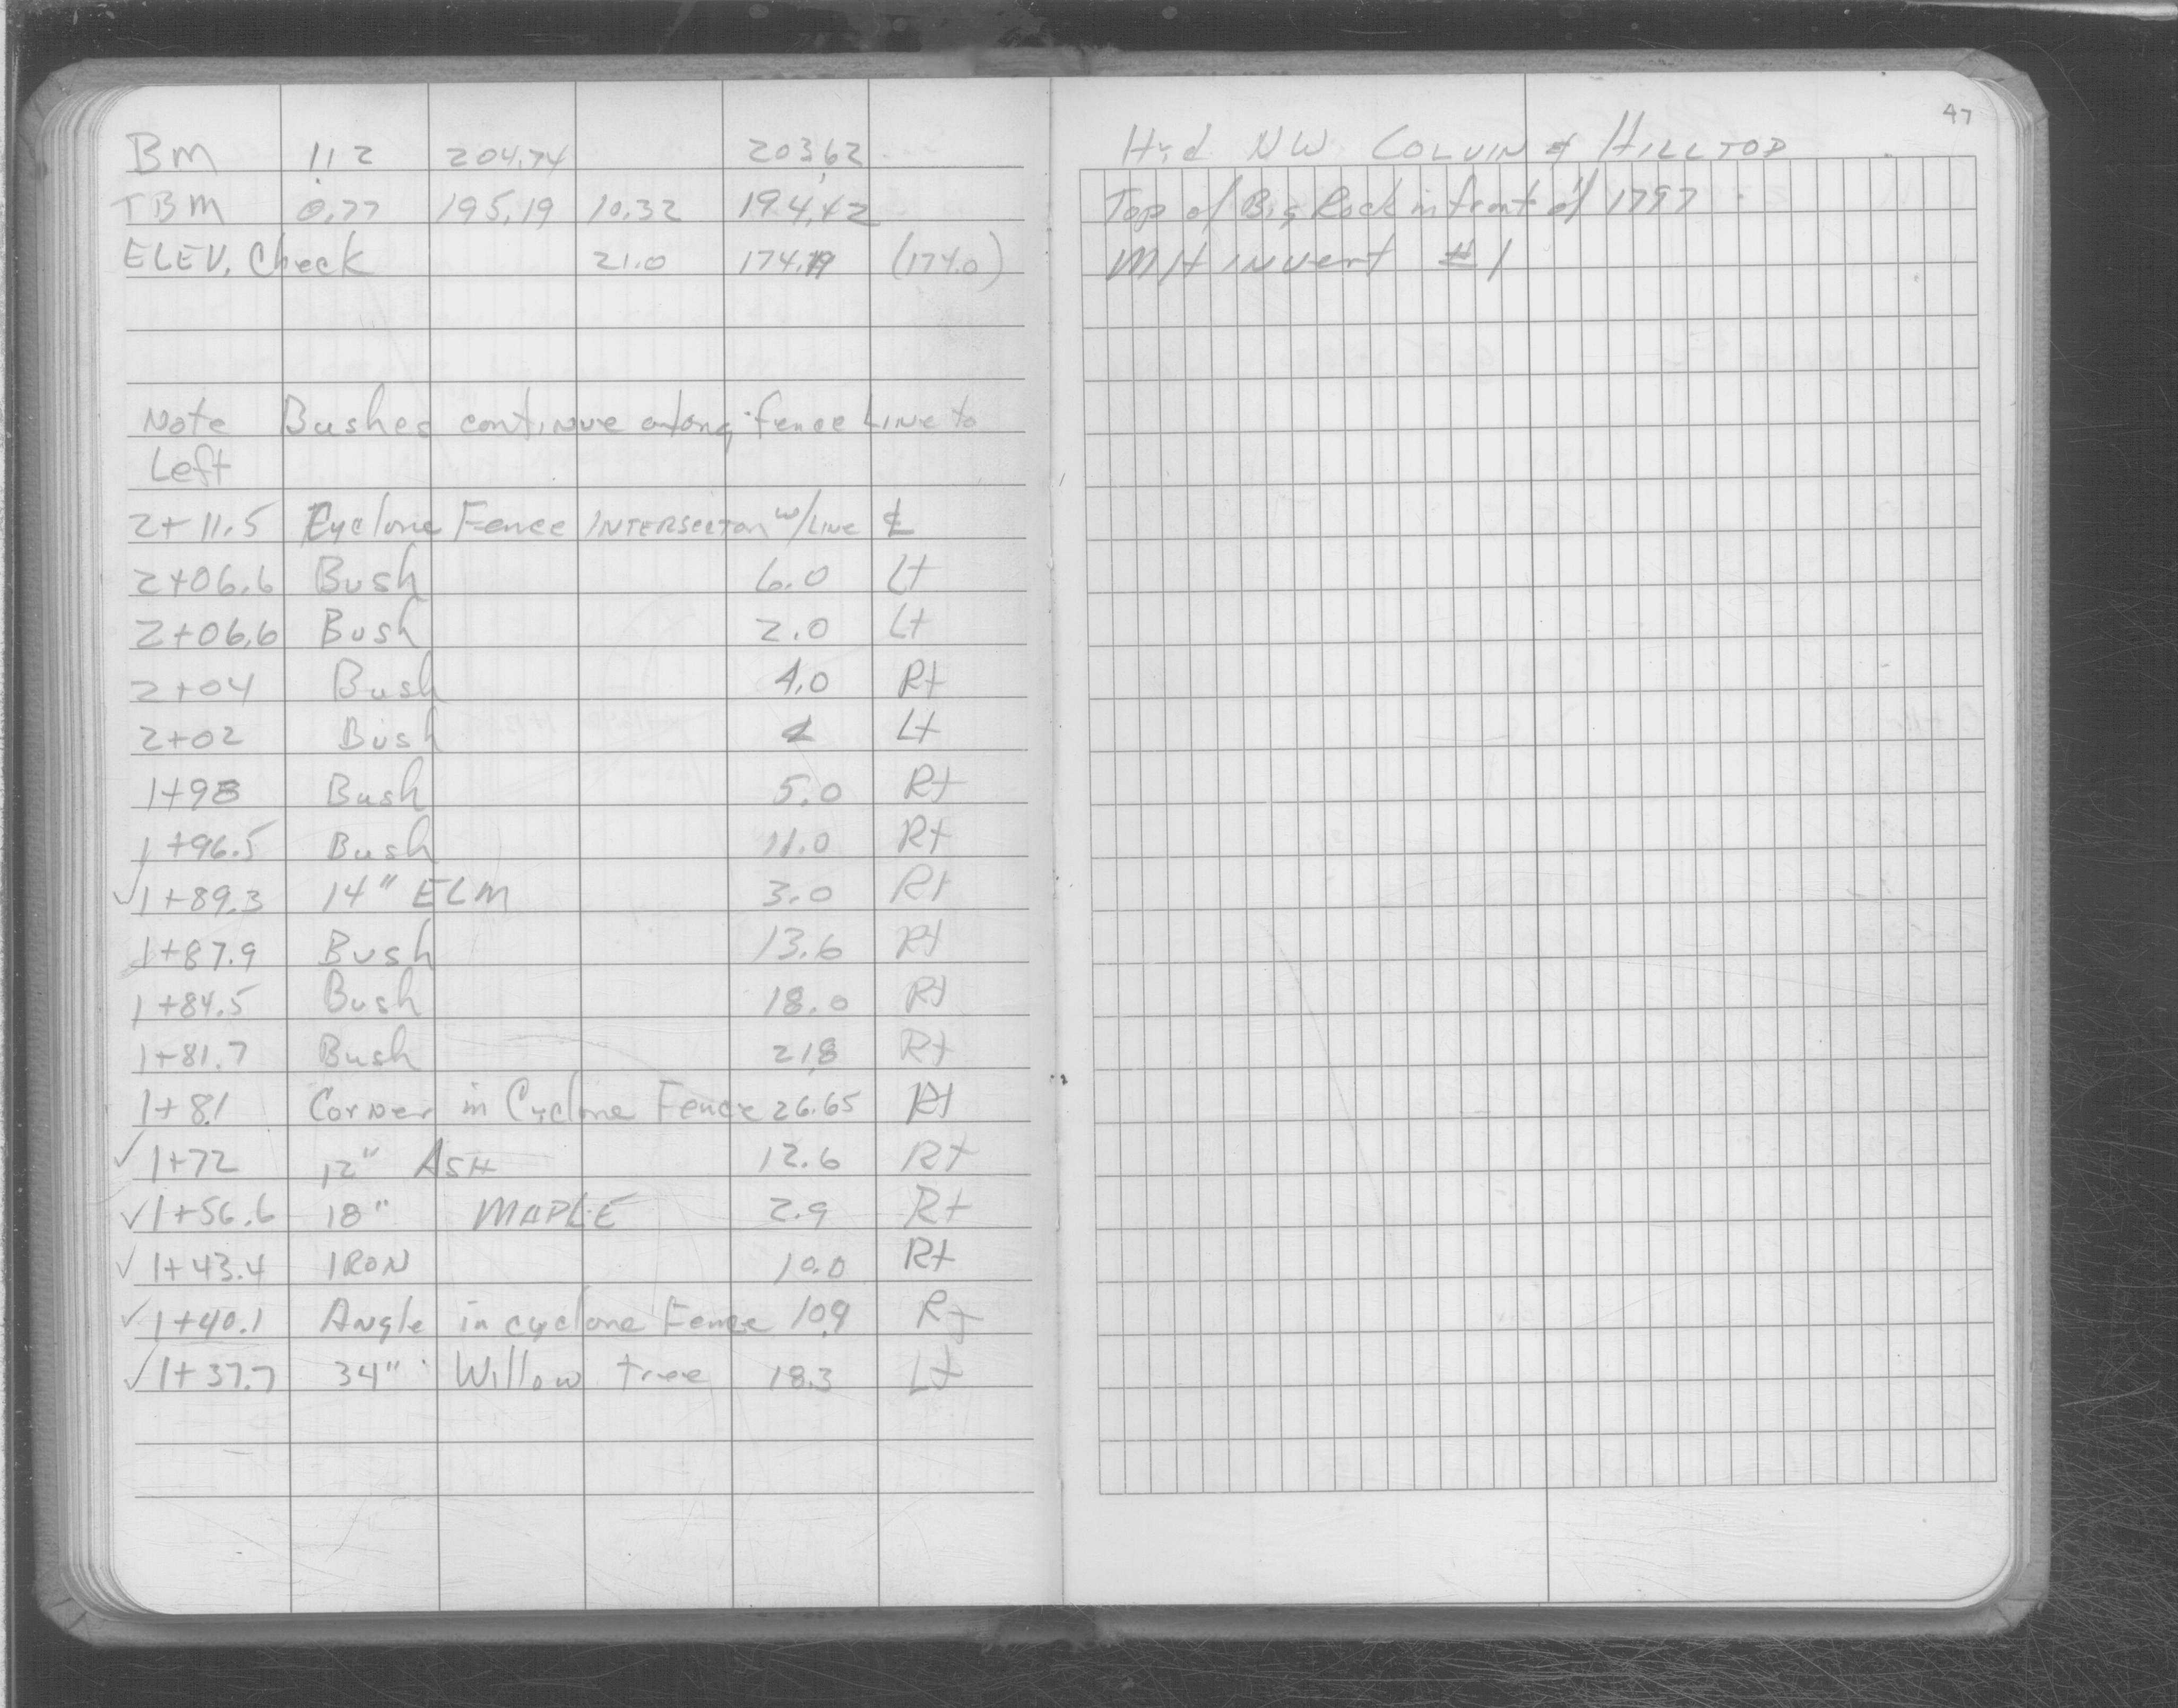 BM 1.12 204.74 203.62
TBM 0.77 195.19 10.32 194.42
ELEV. Check 21.0 174.19 (174.0)
Note Bushes continue along fence Line to
Left
2+11.5 Cyclone Fence INTERSECTON w/LINE ℄
2+06.6 Bush 6.0 Lt
2+06.6 Bush 2.0 Lt
2+04 Bush 4.0 Rt
2+02 Bush Lt
1+98 Bush 5.0 Rt
1+96.5 Bush 11.0 Rt
✓1+89.3 14" ELM 3.0 Rt
1+87.9 Bush 13.6 Rt
1+84.5 Bush 18.0 Rt
1+81.7 Bush 21.8 Rt
1+81 Corner in Cyclone Fence 26.65 Rt
✓ 1+72 12" ASH 12.6 Rt
✓1+56.6 18" MAPLE 2.9 Rt
✓ 1+43.4 IRON 10.0 Rt
✓ 1+40.1 Angle in cyclone Fence 10.9 Rt
✓1+37.7 34" Willow tree 18.3 Lt
47
Hyd NW COLVIN & HILLTOP
Top of Big Rock in front of 1797
MH INVert #1